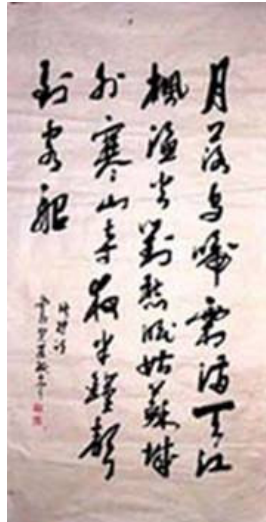 月落乌啼霜满天江
枫渔火对愁眠姑苏城
外寒山寺夜半钟声
到客船